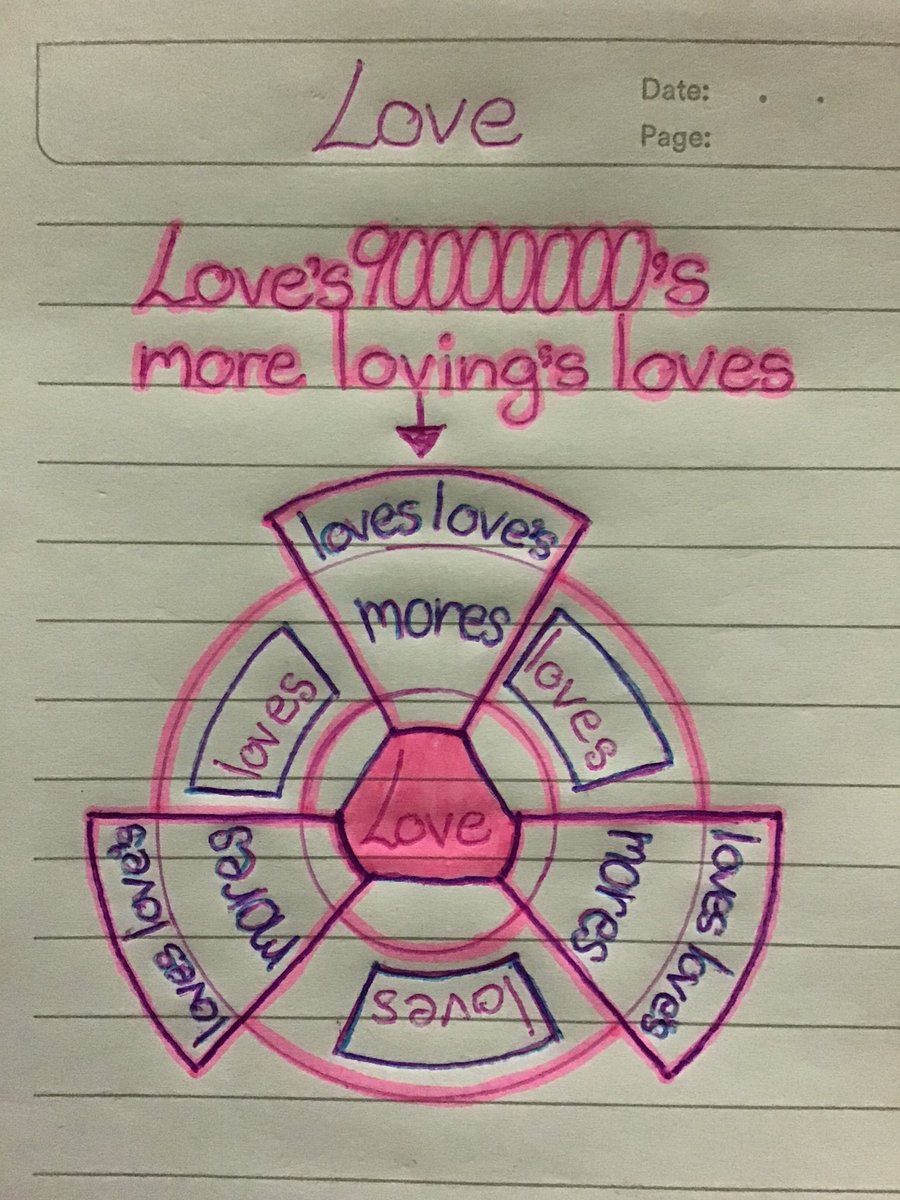 Love
Date: . .
Page:
Love's 90000000's
more loving's loves
loves love's
mores
loves
loves
Love
loves love's
mores
mores
loves love's
loves